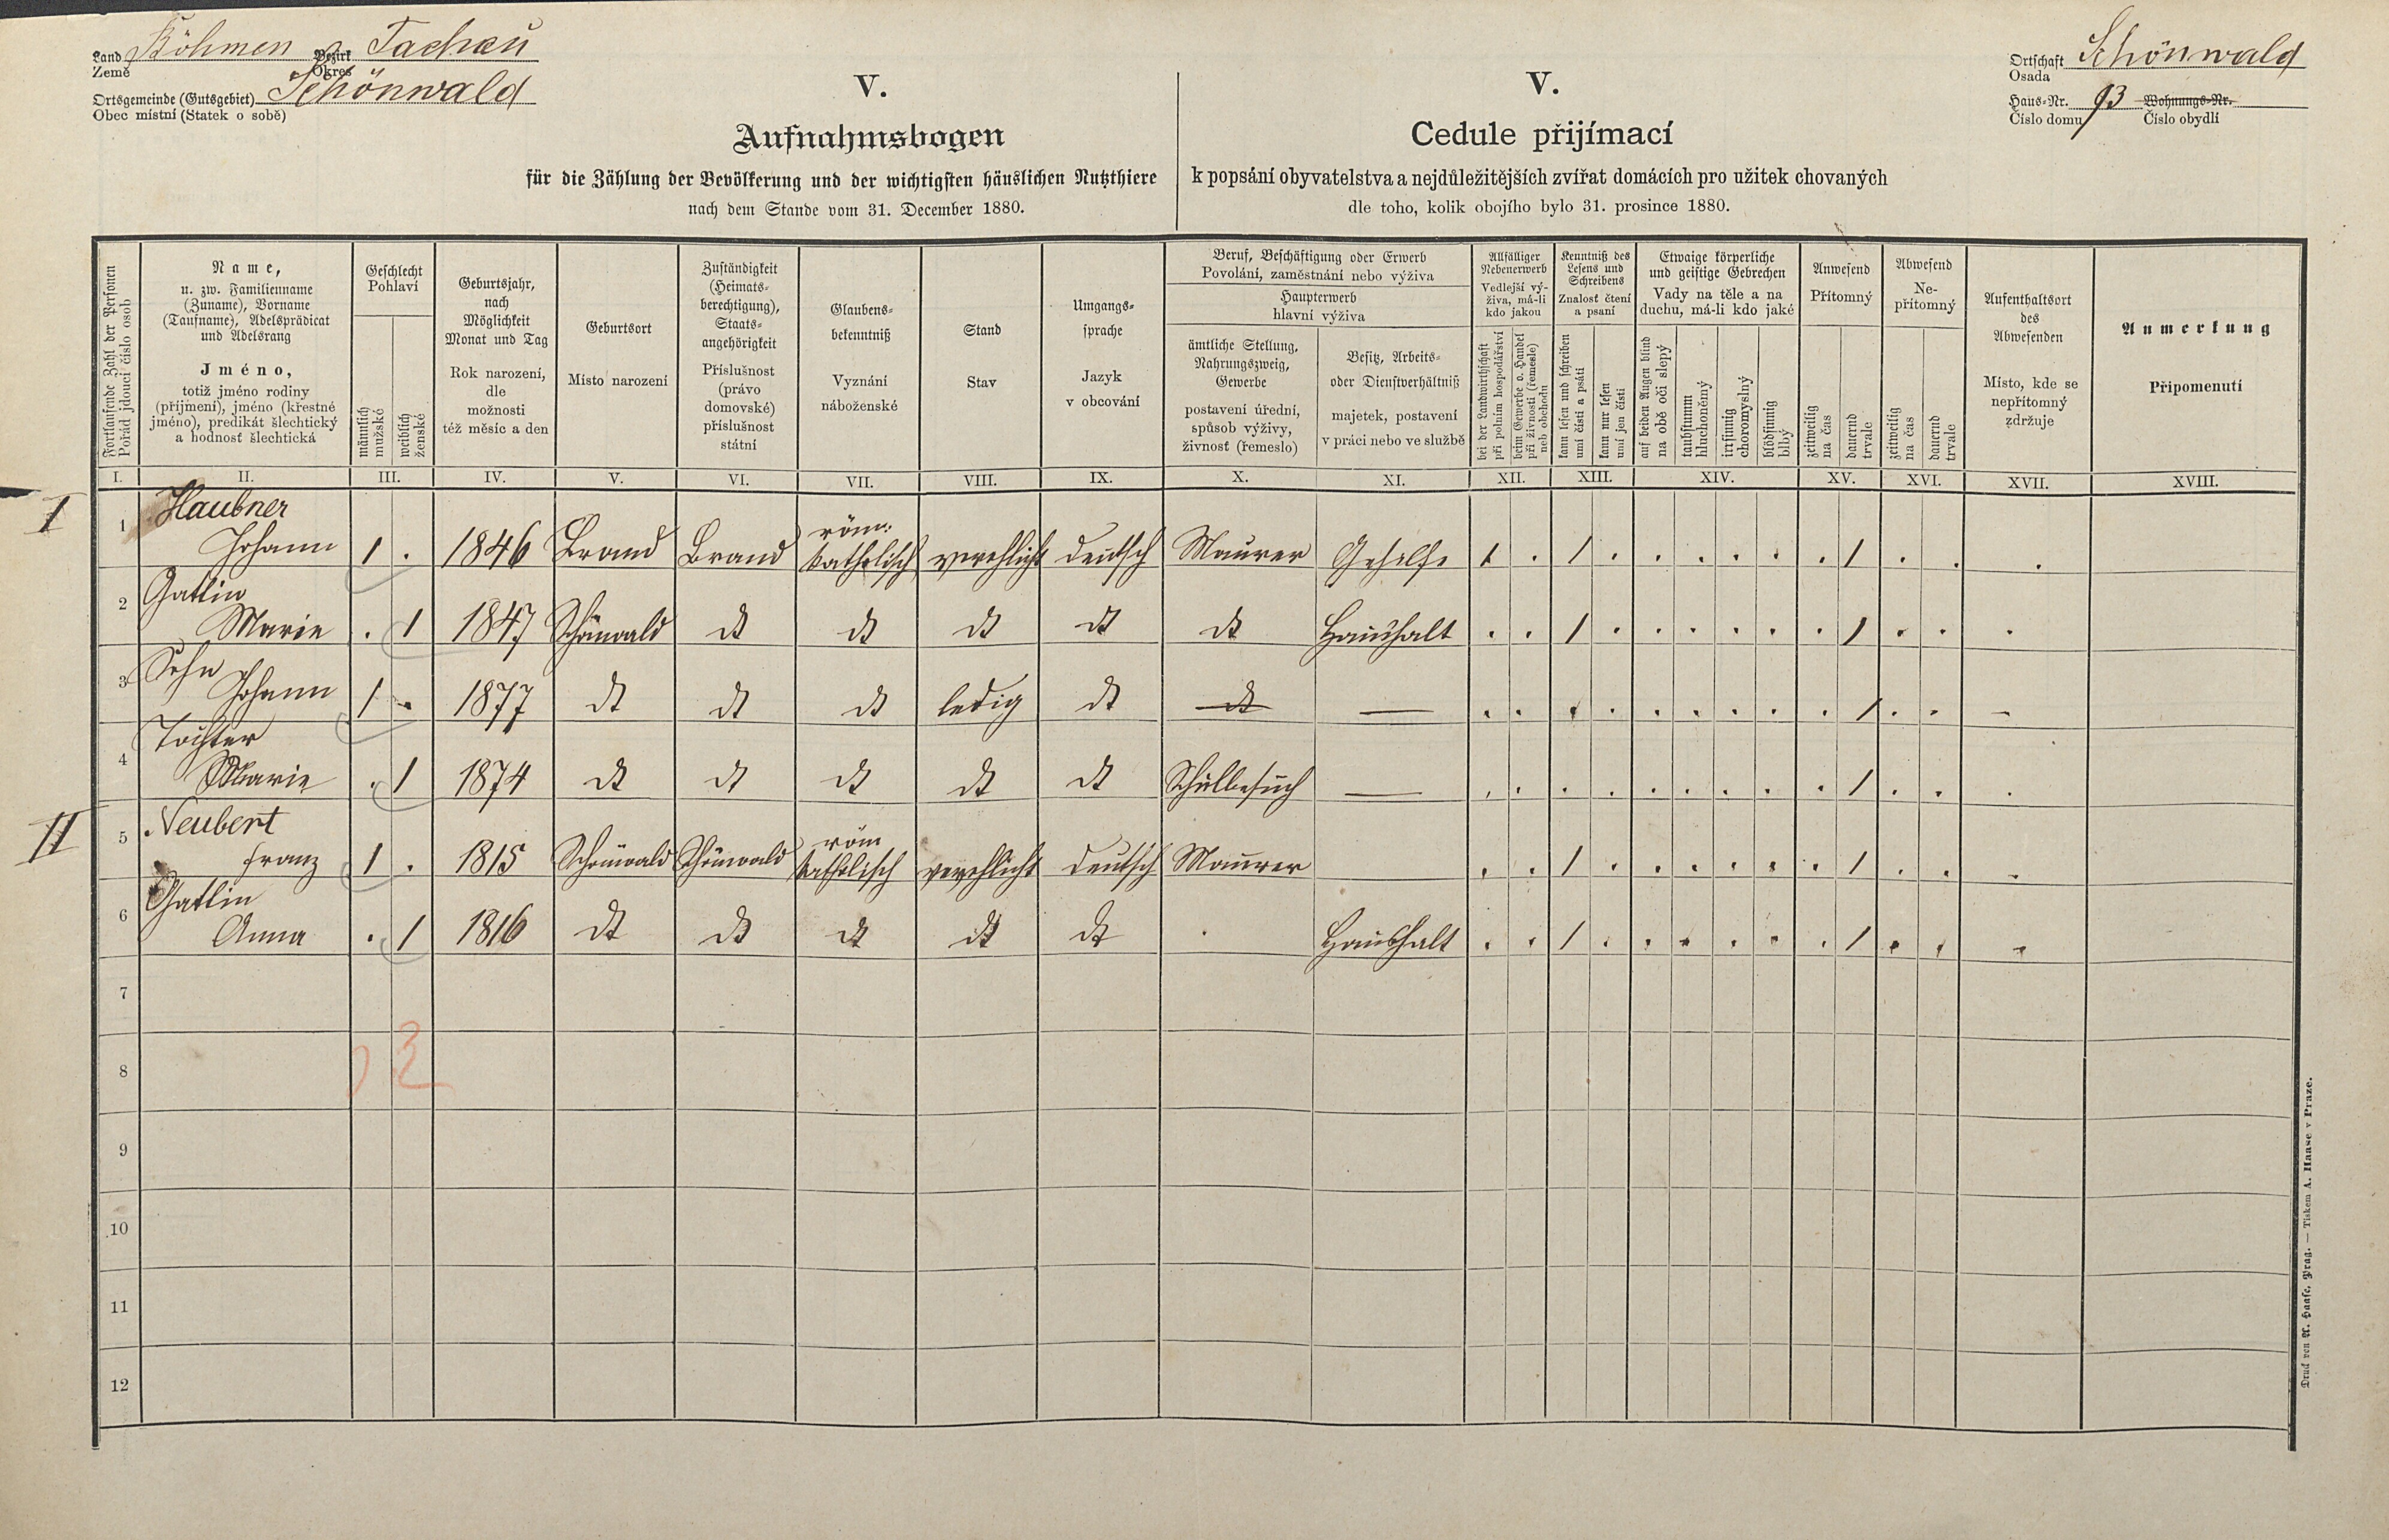 Land Böhmen Bezirk Tachau
Země Okres
Ortsgemeinde (Gutsgebiet) Schönwald
Obec místní (Statek o sobě)
V.
Aufnahmsbogen
für die Zählung der Bevölkerung und der wichtigsten häuslichen Nutzthiere
nach dem Stande vom 31. December 1880.
V.
Cedule přijímací
k popsání obyvatelstva a nejdůležitějších zvířat domácích pro užitek chovaných
dle toho, kolik obojího bylo 31. prosince 1880.
Ortschaft Schönwald
Osada
Haus-Nr. 93 Wohnungs-Nr.
Číslo domu Číslo obydlí
Fortlaufende Zahl der Personen
Pořád jdoucí číslo osob
Name,
u. zw. Familienname
(Zuname), Vorname
(Taufname), Adelsprädicat
und Adelsrang
Jméno,
totiž jméno rodiny
(příjmení), jméno (křestné
jméno), predikát šlechtický
a hodnosť šlechtická
Geschlecht
Pohlaví
männlich
mužské
weiblich
ženské
Geburtsjahr,
nach
Möglichkeit
Monat und Tag
Rok narození,
dle
možnosti
též měsíc a den
Geburtsort
Místo narození
Zuständigkeit
(Heimats-
berechtigung),
Staats-
angehörigkeit
Příslušnost
(právo
domovské)
příslušnost
státní
Glaubens-
bekenntniß
Vyznání
náboženské
Stand
Stav
Umgangs-
sprache
Jazyk
v obcování
Beruf, Beschäftigung oder Erwerb
Povolání, zaměstnání nebo výživa
Haupterwerb
hlavní výživa
ämtliche Stellung,
Nahrungszweig,
Gewerbe
postavení úřední,
spůsob výživy,
živnosť (řemeslo)
Besitz, Arbeits-
oder Dienstverhältniß
majetek, postavení
v práci nebo ve službě
Allfälliger
Nebenerwerb
Vedlejší vý-
živa, má-li
kdo jakou
bei der Landwirthschaft
při polním hospodářství
beim Gewerbe o. Handel
při živnosti (řemesle)
neb obchodu
Kenntniß des
Lesens und
Schreibens
Znalosť čtení
a psaní
kann lesen und schreiben
umí čísti a psáti
kann nur lesen
umí jen čísti
Etwaige körperliche
und geistige Gebrechen
Vady na těle a na
duchu, má-li kdo jaké
auf beiden Augen blind
na obě oči slepý
taubstumm
hluchoněmý
irrsinnig
choromyslný
blödsinnig
blbý
Anwesend
Přítomný
zeitweilig
na čas
dauernd
trvale
Abwesend
Ne-
přítomný
zeitweilig
na čas
dauernd
trvale
Aufenthaltsort
des
Abwesenden
Místo, kde se
nepřítomný
zdržuje
Anmerkung
Připomenutí
I. II. III. IV. V. VI. VII. VIII. IX. X. XI. XII. XIII. XIV. XV. XVI. XVII. XVIII.
I 1 Haubner
Johann 1 . 1846 Brand Brand röm. katholisch verehlicht deutsch Maurer Gehilfe 1 . 1 . . . . . . 1 . . .
2 Gattin
Marie . 1 1847 Schönwald dt dt dt dt dt Haushalt . . 1 . . . . . . 1 . . .
3 Sohn
Johann 1 . 1877 dt dt dt ledig dt dt — . . . . . . . . . 1 . . .
4 Tochter
Marie . 1 1874 dt dt dt dt dt Schulbesuch — . . . . . . . . . 1 . . .
II 5 Neubert
Franz 1 . 1815 Schönwald Schönwald röm katholisch verehlicht deutsch Maurer . . 1 . . . . . . 1 . . .
6 Gattin
Anna . 1 1816 dt dt dt dt dt . Haushalt . . 1 . . . . . . 1 . . .
7
8
9
10
11
12
Druck von A. Haase, Prag. — Tiskem A. Haase v Praze.